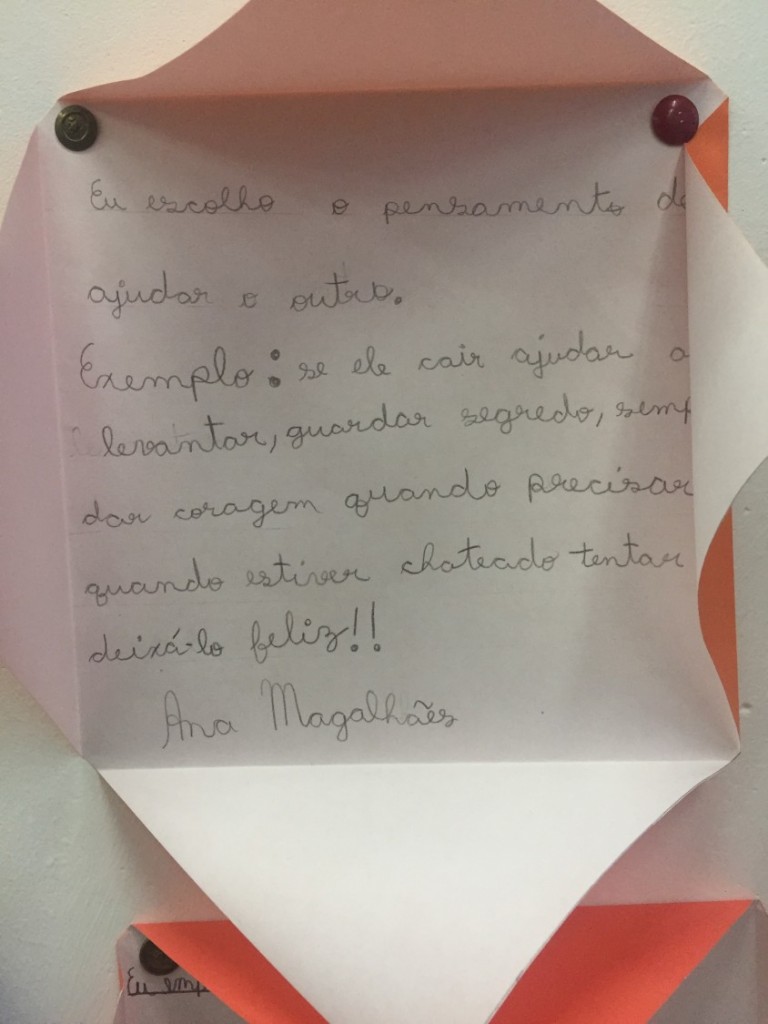 Eu escolho o pensamento de
ajudar o outro.
Exemplo: se ele cair ajudar a
levantar, guardar segredo, semp
dar coragem quando precisar
quando estiver chateado tentar
deixá-lo feliz!!
Ana Magalhães
Eu emp